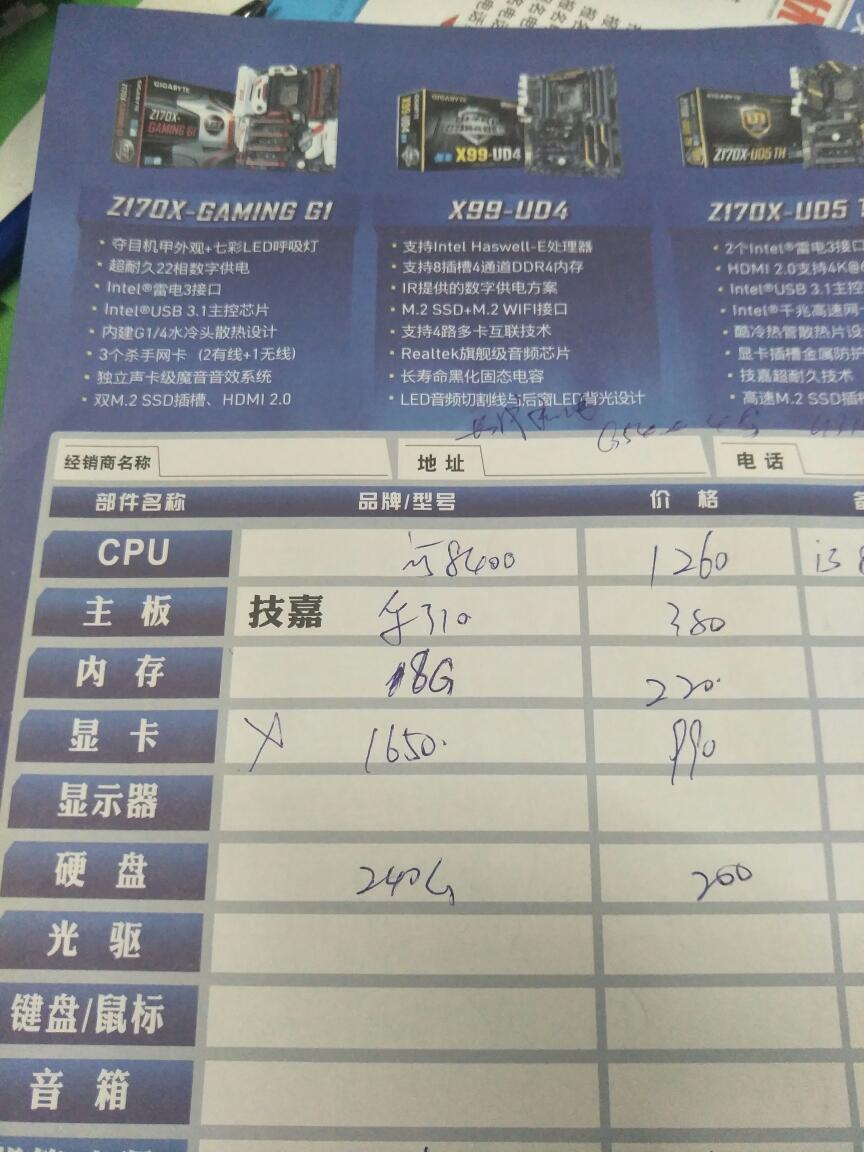 GIGABYTE
Z170X-
GAMING G1
GIGABYTE
X99-UD4
GIGABYTE
Z170X-UD5 TH
Z170X-GAMING G1
• 夺目机甲外观+七彩LED呼吸灯
• 超耐久22相数字供电
• Intel®雷电3接口
• Intel®USB 3.1主控芯片
• 内建G1/4水冷头散热设计
• 3个杀手网卡 (2有线+1无线)
• 独立声卡级魔音音效系统
• 双M.2 SSD插槽、HDMI 2.0
X99-UD4
• 支持Intel Haswell-E处理器
• 支持8插槽4通道DDR4内存
• IR提供的数字供电方案
• M.2 SSD+M.2 WIFI接口
• 支持4路多卡互联技术
• Realtek旗舰级音频芯片
• 长寿命黑化固态电容
• LED音频切割线与后窗LED背光设计
Z170X-UD5 T
• 2个Intel®雷电3接口
• HDMI 2.0支持4K@6
• Intel®USB 3.1主控
• Intel®千兆高速网卡
• 酷冷热管散热片设
• 显卡插槽金属防护
• 技嘉超耐久技术
• 高速M.2 SSD插槽
经销商名称 地址 电话
部件名称 品牌/型号 价 格
CPU i5 8400 1260 i3 8
主 板 技嘉 310 380
内 存 8G 220
显 卡 X 1650 990
显示器
硬 盘 240G 200
光 驱
键盘/鼠标
音 箱